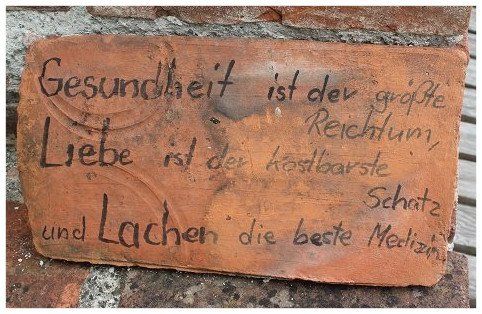 Gesundheit ist der größte
Reichtum,
Liebe ist der kostbarste
Schatz
und Lachen die beste Medizin